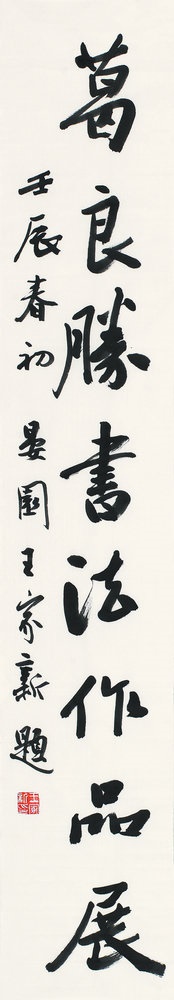 葛良勝書法作品展
壬辰春初 晏園王家新題
王家新印